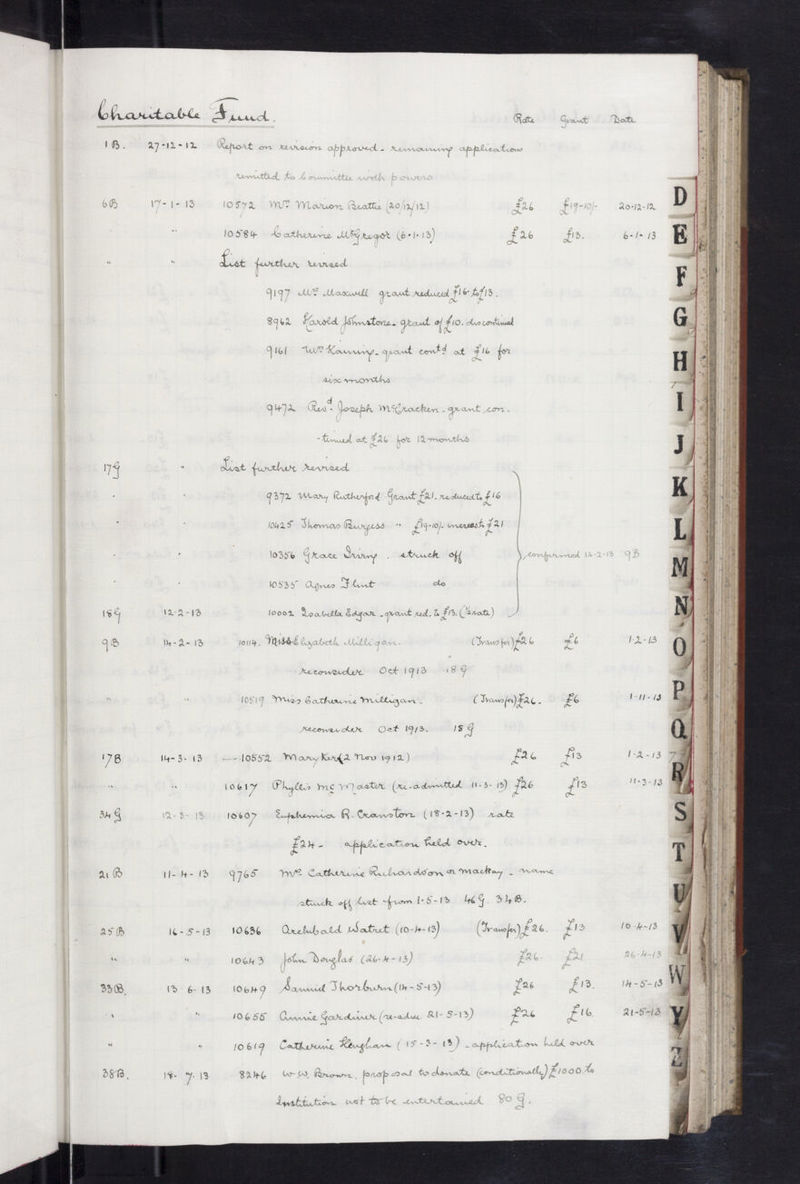 Charitable Fund. Rate Grant Date
1B. 27-12-12 Report on revision approved - remaining application
remitted to Committee with powers
6B 17-1-13 10572 Mrs Marion Beattie (20/12/12) £26 £19-10/- 20-12-12
" 10584 Catherine McGregor (6-1-13) £26 £13. 6-1-13
" " List further revised
9197 Mrs Maxwell grant reduced £16 to £13.
8962 Harold Johnstone - grant of £10. discontinued
9161 - grant contd at £16 for
six months
9472 Revd. Joseph McCracken - grant con-
-tinued at £26 for 12 months
17G " List further revised
" " 9372 Mary Rutherford Grant £21. reduced to £16
" " 10425 Thomas Burgess " £19-10/- increase to £21
" " 10356 Grace Irving . struck off confirmed 14-2-13 9B
" " 10535 Agnes Flint do
18G 12-2-13 10002 Isabella Edgar - grant red. to £13. (½ rate)
9B 14-2-13 10114. Miss Elizabeth Milligan. (Transfer) £26 £6 1-2-13
reconsider Oct 1913 18G
" " 10519 Miss Catherine Milligan. (Transfer) £26. £6 1-11-13
reconsider Oct 1913. 18G
17B 14-3-13 10552 Mary Kerr (2 Nov 1912) £26 £13 1-2-13
" " 10617 Phyllis McMaster (re-admitted 11-3-13) £26 £13 11-3-13
34G 12-3-13 10607 Euphemia R. Cranston (18-2-13) rate
£24 - application held over.
21B 11-4-13 9765 Mrs Catherine Richardson or Mackay - name
struck off list from 1-5-13 46G. 34B.
25B 16-5-13 10636 Archibald Watret (10-4-13) (Transfer) £26. £13 10-4-13
" " 10643 John Douglas (26-4-13) £26. £21 26-4-13
33B. 13-6-13 10649 Samuel Thorburn (14-5-13) £26 £13. 14-5-13
" " 10655 Annie Gardiner (re-adm. 21-5-13) £26 £16. 21-5-13
" " 10619 Catherine (15-3-13) - application held over
38B. 18-7-13 8246 W.W. Brown. proposal to donate (conditionally) £1000 to
Institution not to be entertained 80G.
D
E
F
G
H
I
J
K
L
M
N
O
P
Q
R
S
T
U
V
W
Y
Z